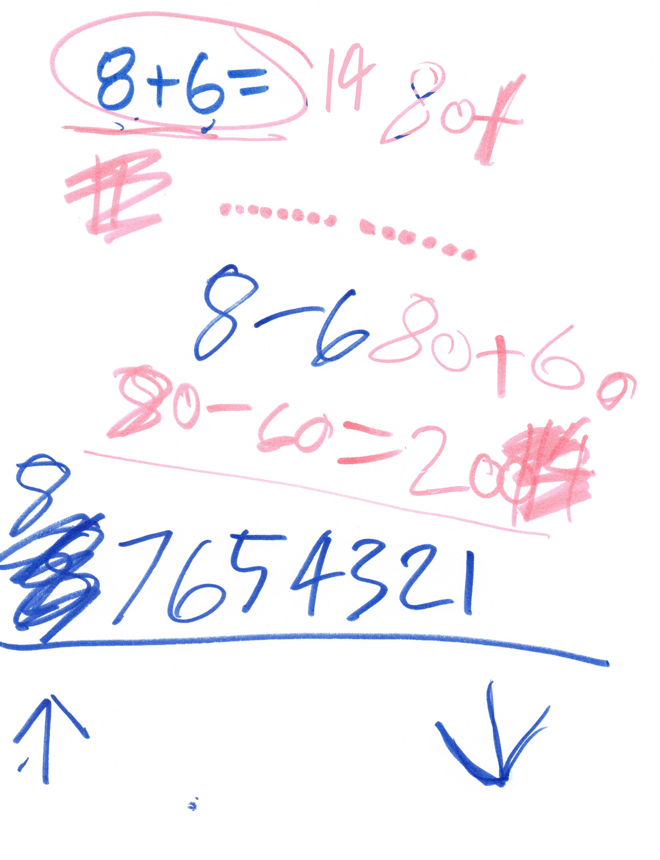 8+6= 14 80+
8-6 80+60
80-60=200
8
7654321